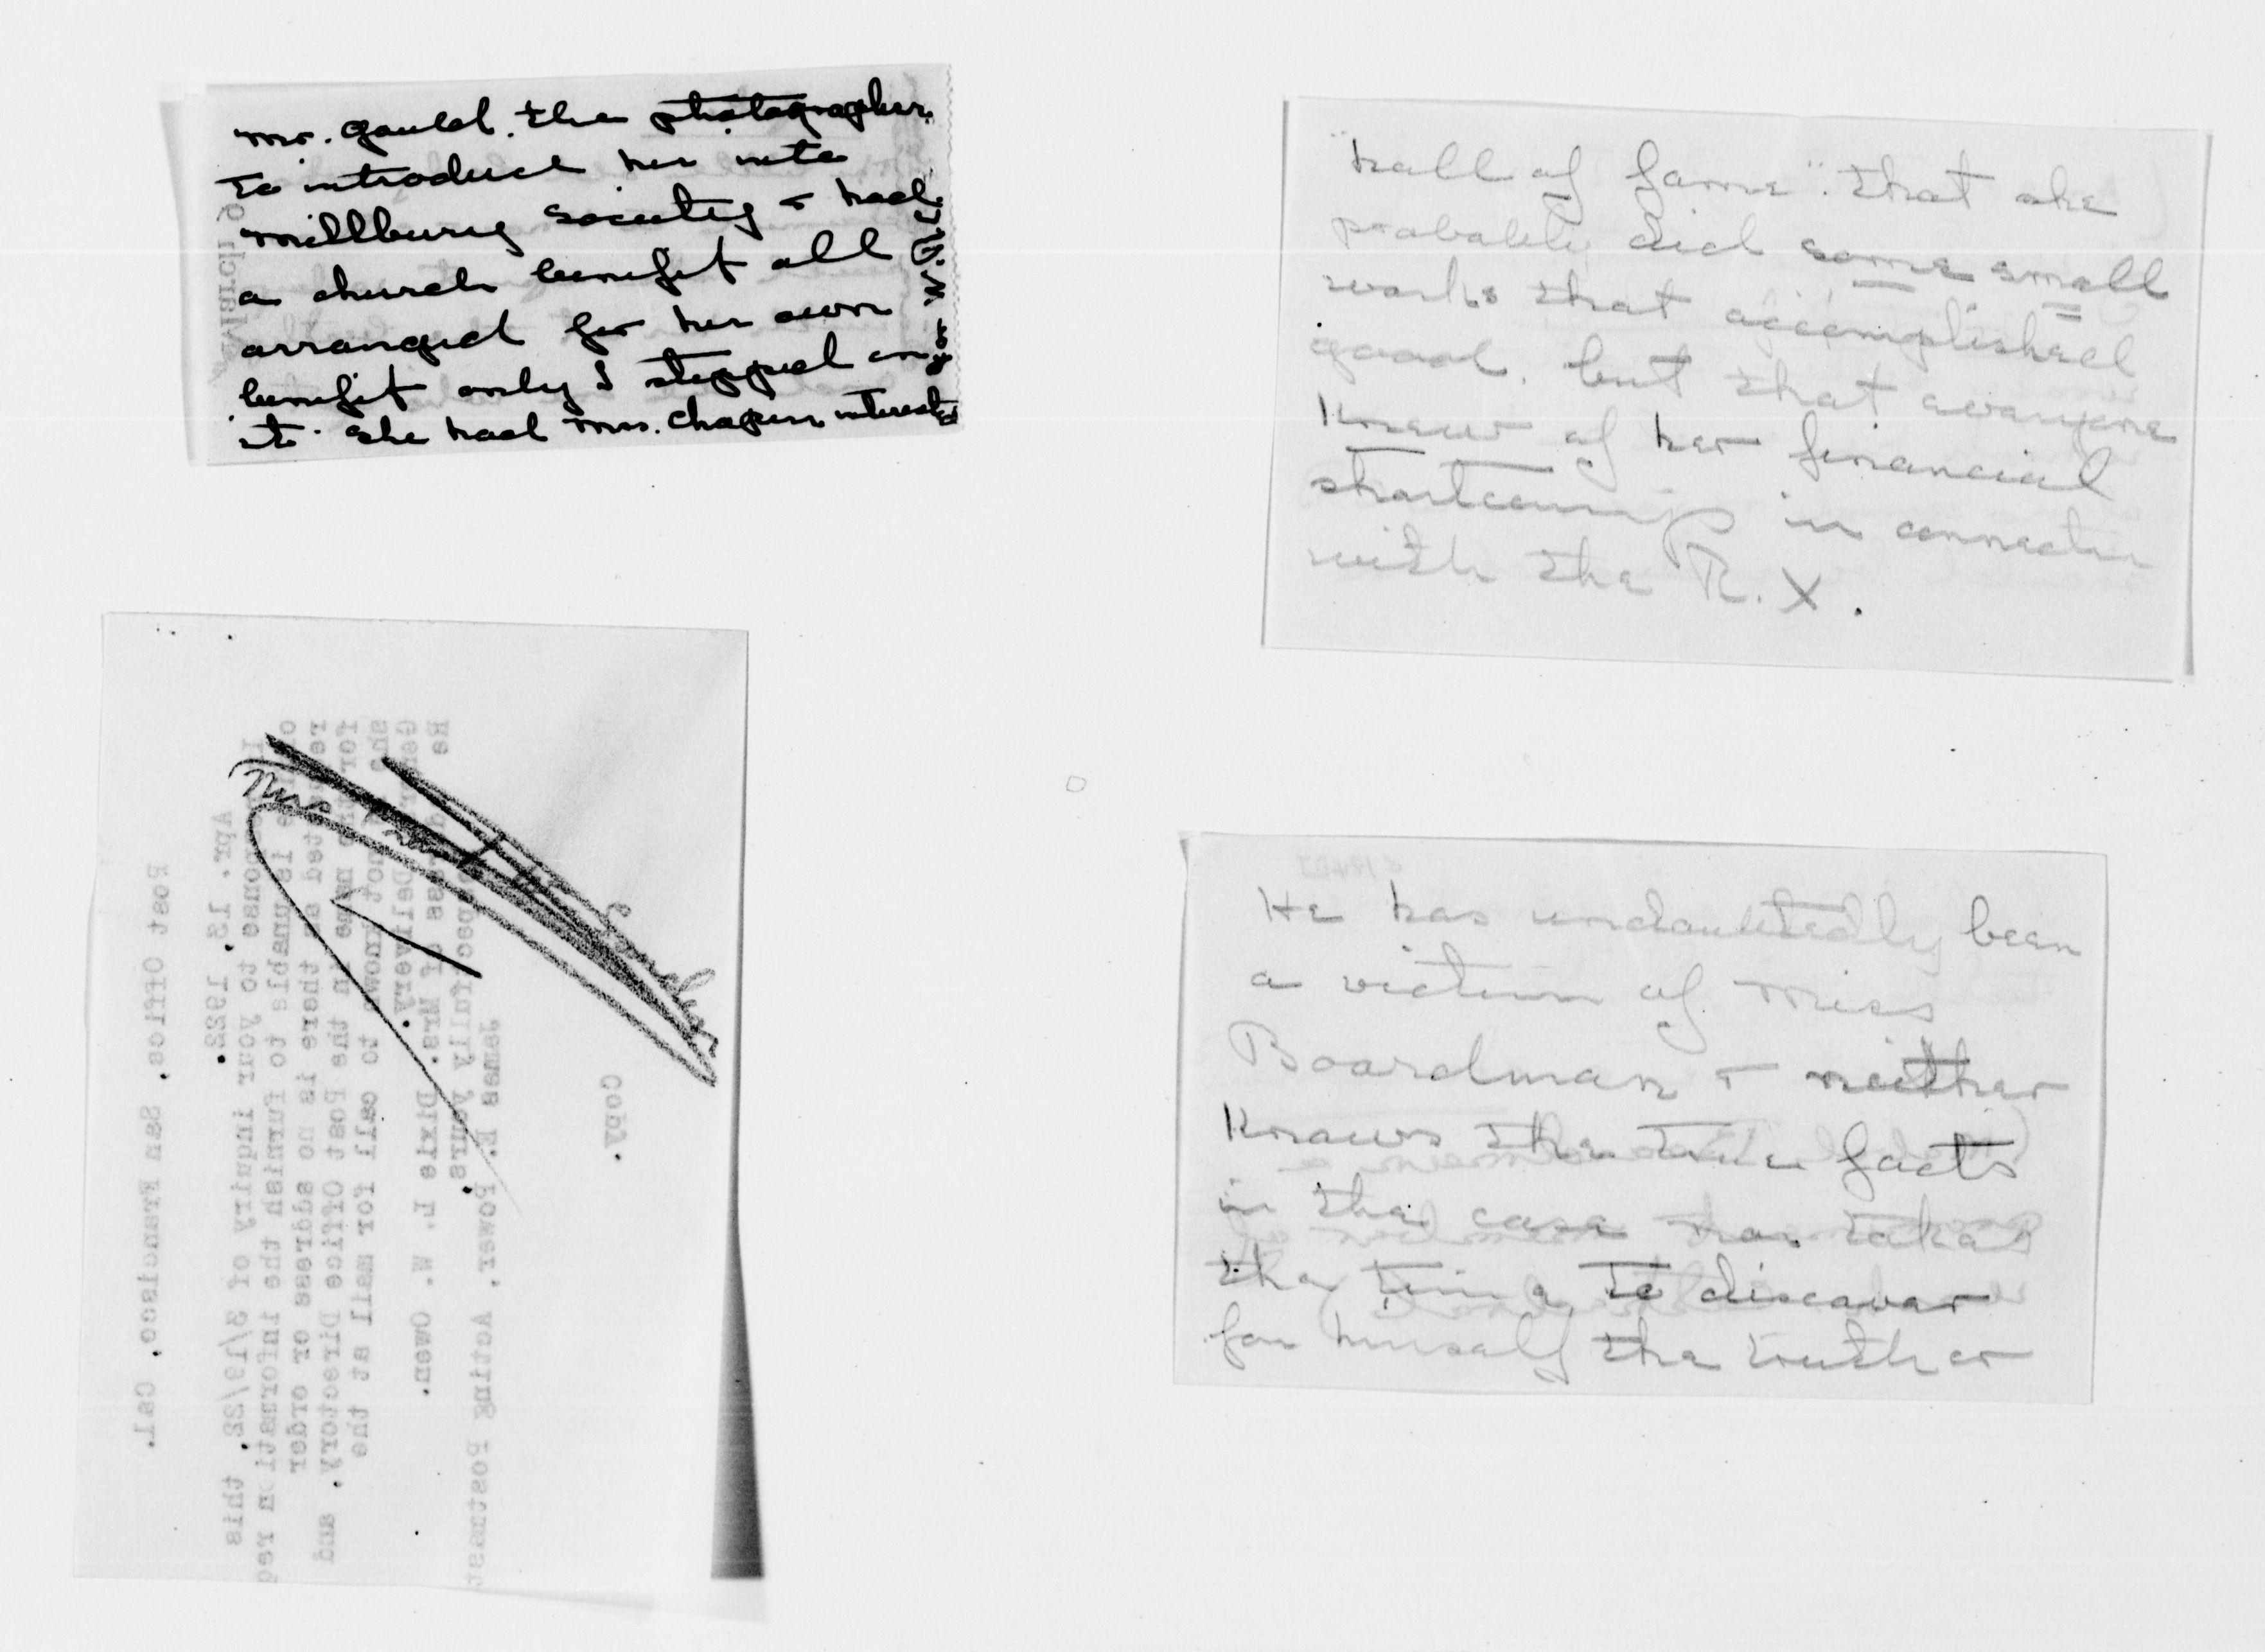 Mr. Gould. the photographer.
To introduce her into
Millbury Society & had
a church benefit all
arranged for her own
benefit only I stepped on
it. She had Mrs. Chapin interested
"hall of fame". that she
probably did some small
works that accomplished
good. but that everyone
knew of her financial
shortcoming in connection
with the R. X.
Mrs
Copy.
Post Office, San Francisco, Cal.
Apr. 13, 1922.
In response to your inquiry of 3/19/22, this
office is unable to furnish the information req
requested as there is no address or order
for the name in the Post Office Directory, and
she is not known to call for mail at the
General Delivery.
Re address of Mrs. Dixie L. W. Owen.
Respectfully yours,
James E. Power, Acting Postmast
He has undoubtedly been
a victim of Miss
Boardman & neither
knows the true facts
in the case nor takes
the time to discover
for himself the truth or